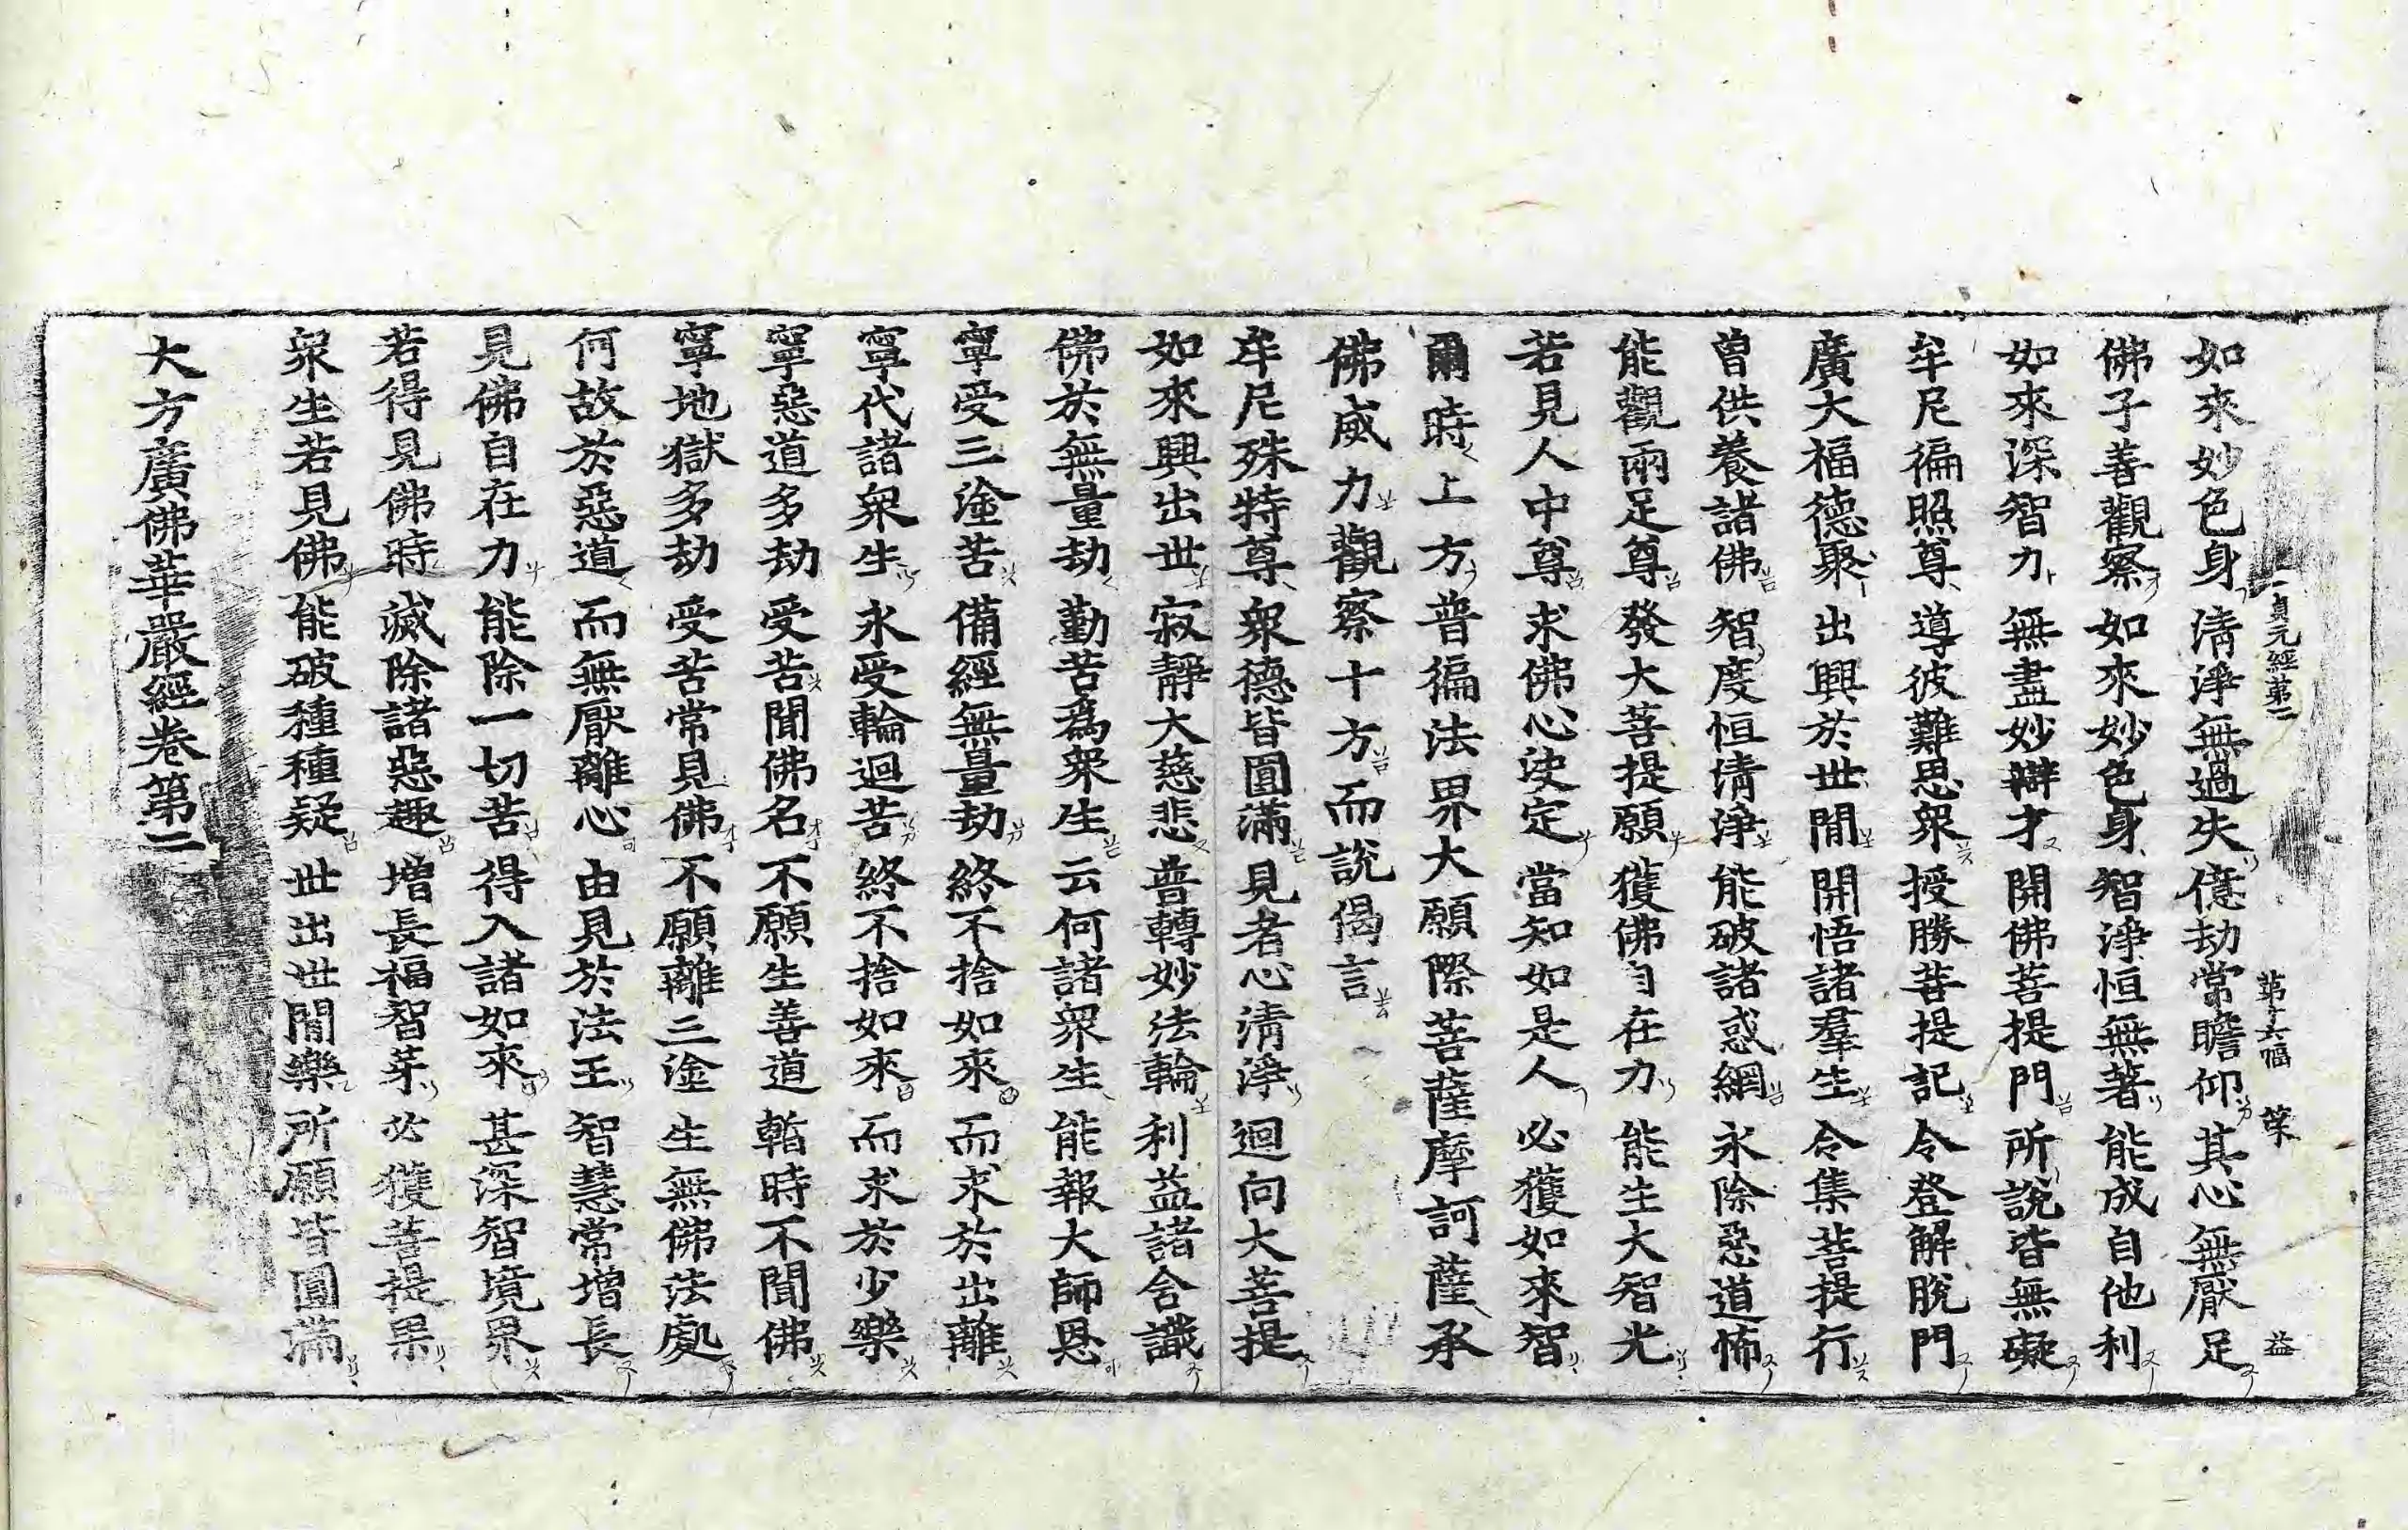 貞元經第二 第十六幅 榮 益
如來妙色身 淸淨無過失 億劫常瞻仰 其心無厭足
佛子善觀察 如來妙色身 智淨恒無著 能成自他利
如來深智力 無盡妙辯才 開佛菩提門 所說皆無礙
牟尼徧照尊 導彼難思衆 授勝菩提記 令登解脫門
廣大福德聚 出興於世閒 開悟諸羣生 令集菩提行
曾供養諸佛 智度恒淸淨 能破諸惑網 永除惡道怖
能觀兩足尊 發大菩提願 獲佛自在力 能生大智光
若見人中尊 求佛心決定 當知如是人 必獲如來智
爾時上方普徧法界大願際菩薩摩訶薩承
佛威力觀察十方而說偈言
牟尼殊特尊 衆德皆圓滿 見者心淸淨 迴向大菩提
如來興出世 寂靜大慈悲 普轉妙法輪 利益諸含識
佛於無量劫 勤苦爲衆生 云何諸衆生 能報大師恩
寧受三塗苦 備經無量劫 終不捨如來 而求於出離
寧代諸衆生 永受輪迴苦 終不捨如來 而求於少樂
寧惡道多劫 受苦聞佛名 不願生善道 暫時不聞佛
寧地獄多劫 受苦常見佛 不願離三塗 生無佛法處
何故於惡道 而無厭離心 由見於法王 智慧常增長
見佛自在力 能除一切苦 得入諸如來 甚深智境界
若得見佛時 滅除諸惡趣 增長福智芽 必獲菩提果
衆生若見佛 能破種種疑 世出世閒樂 所願皆圓滿
大方廣佛華嚴經卷第二